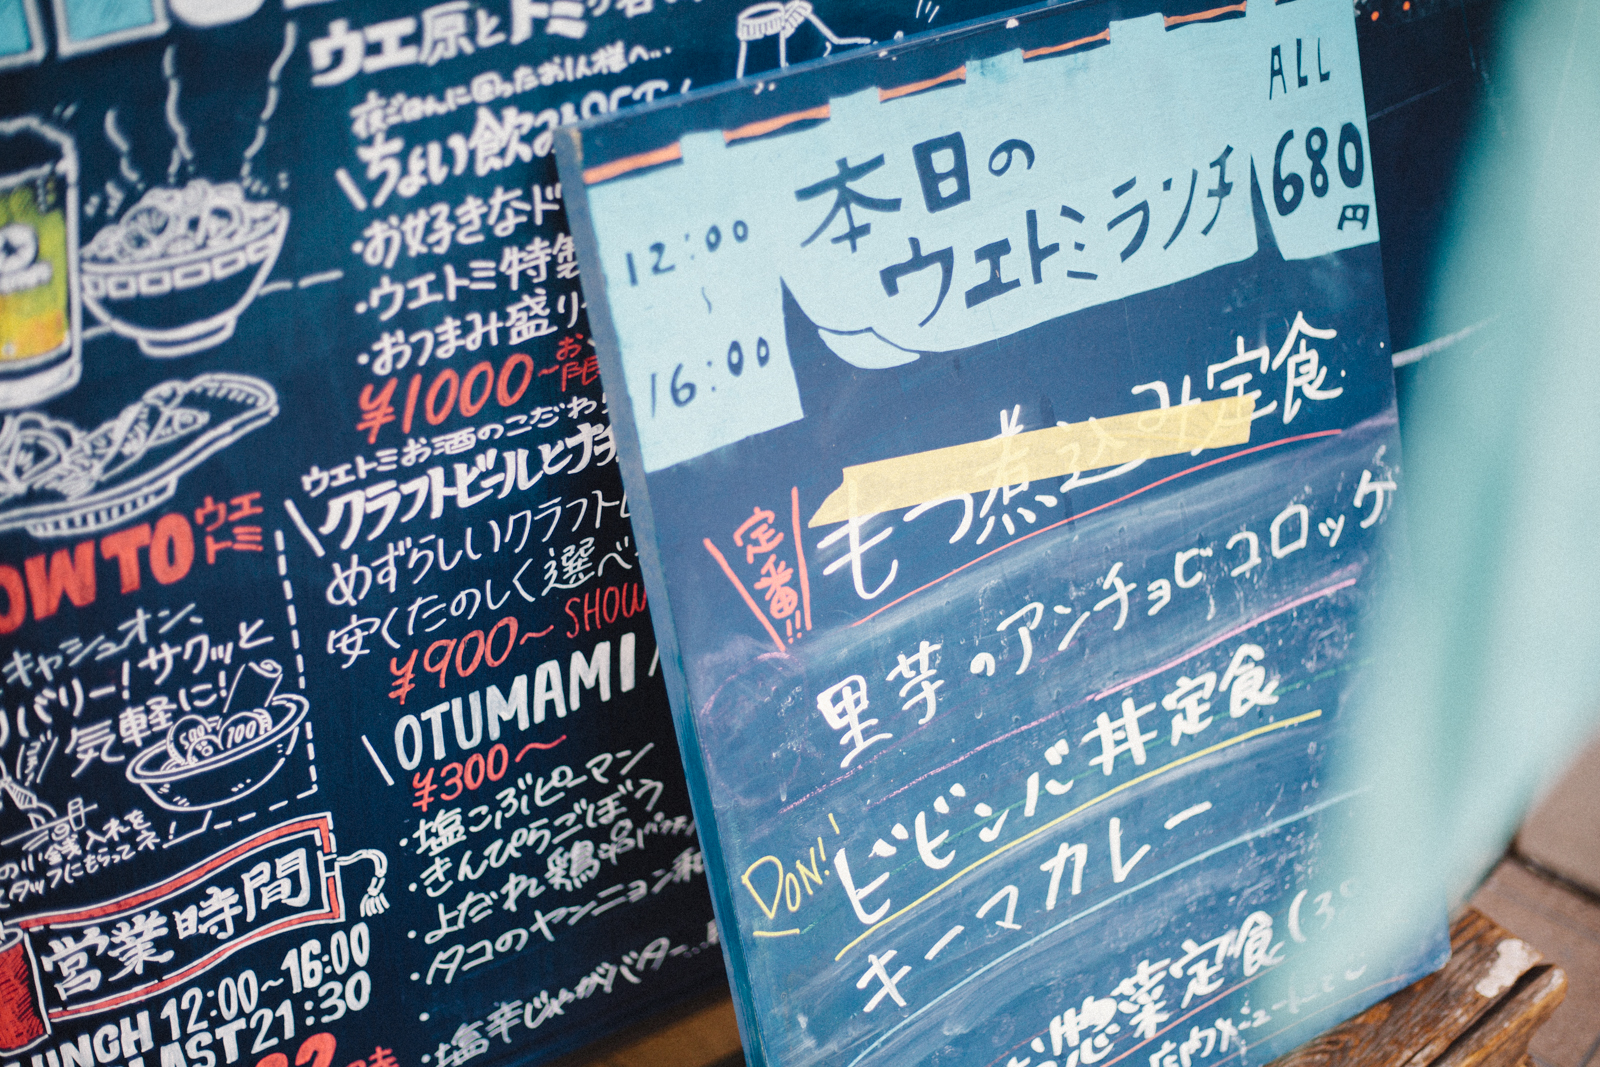 ウエ原とトミ
夜ごはんに困ったお1人様へ…
ちょい飲み
・お好きなド
・ウエトミ特製
・おつまみ盛り
¥1000~
ウエトミお酒のこだわり
クラフトビールとナチ
めずらしいクラフト
安くたのしく選べ
¥900~ SHOW
OTUMAMI
¥300~
・塩こぶピーマン
・きんぴらごぼう
・よだれ鶏
・タコのヤンニョン和
・塩辛じゃがバター…
OW TO ウエトミ
キャッシュオン、
バリー!サクッと
気軽に!
500
100円
小銭入れを
スタッフにもらってネ!
営業時間
LUNCH 12:00~16:00
LAST 21:30
本日の
ウエトミランチ
12:00
~
16:00
ALL
680
円
定番!!
もつ煮込み定食
里芋のアンチョビコロッケ
DON!
ビビンバ丼定食
キーマカレー
お惣菜定食(
店内メニュー